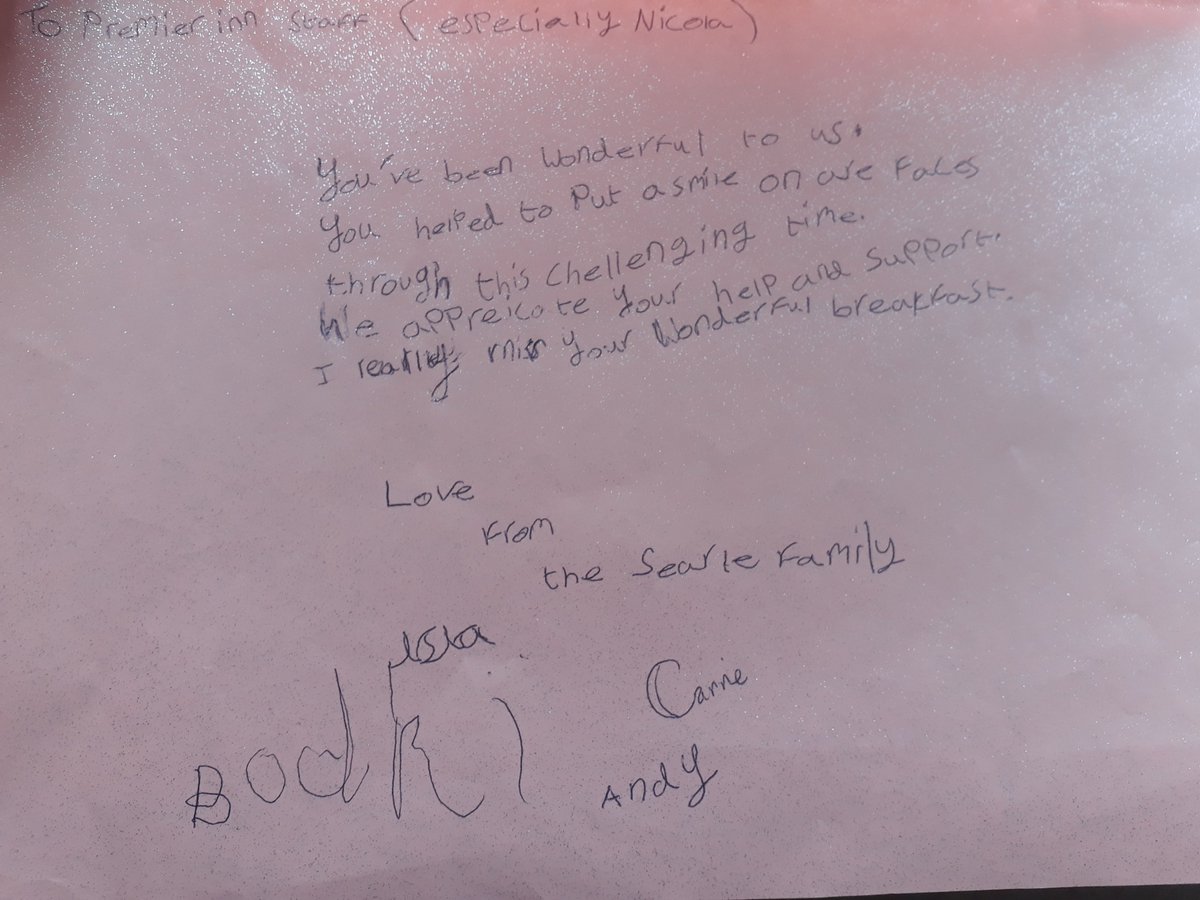 To Premier inn staff (especially Nicola)
You've been wonderful to us.
You helped to Put a smile on are Faces
through this Chellenging time.
We appreicate your help and support.
I really miss your wonderful breakfast.
Love
From
the Searle Family
Isla
Carrie
Andy